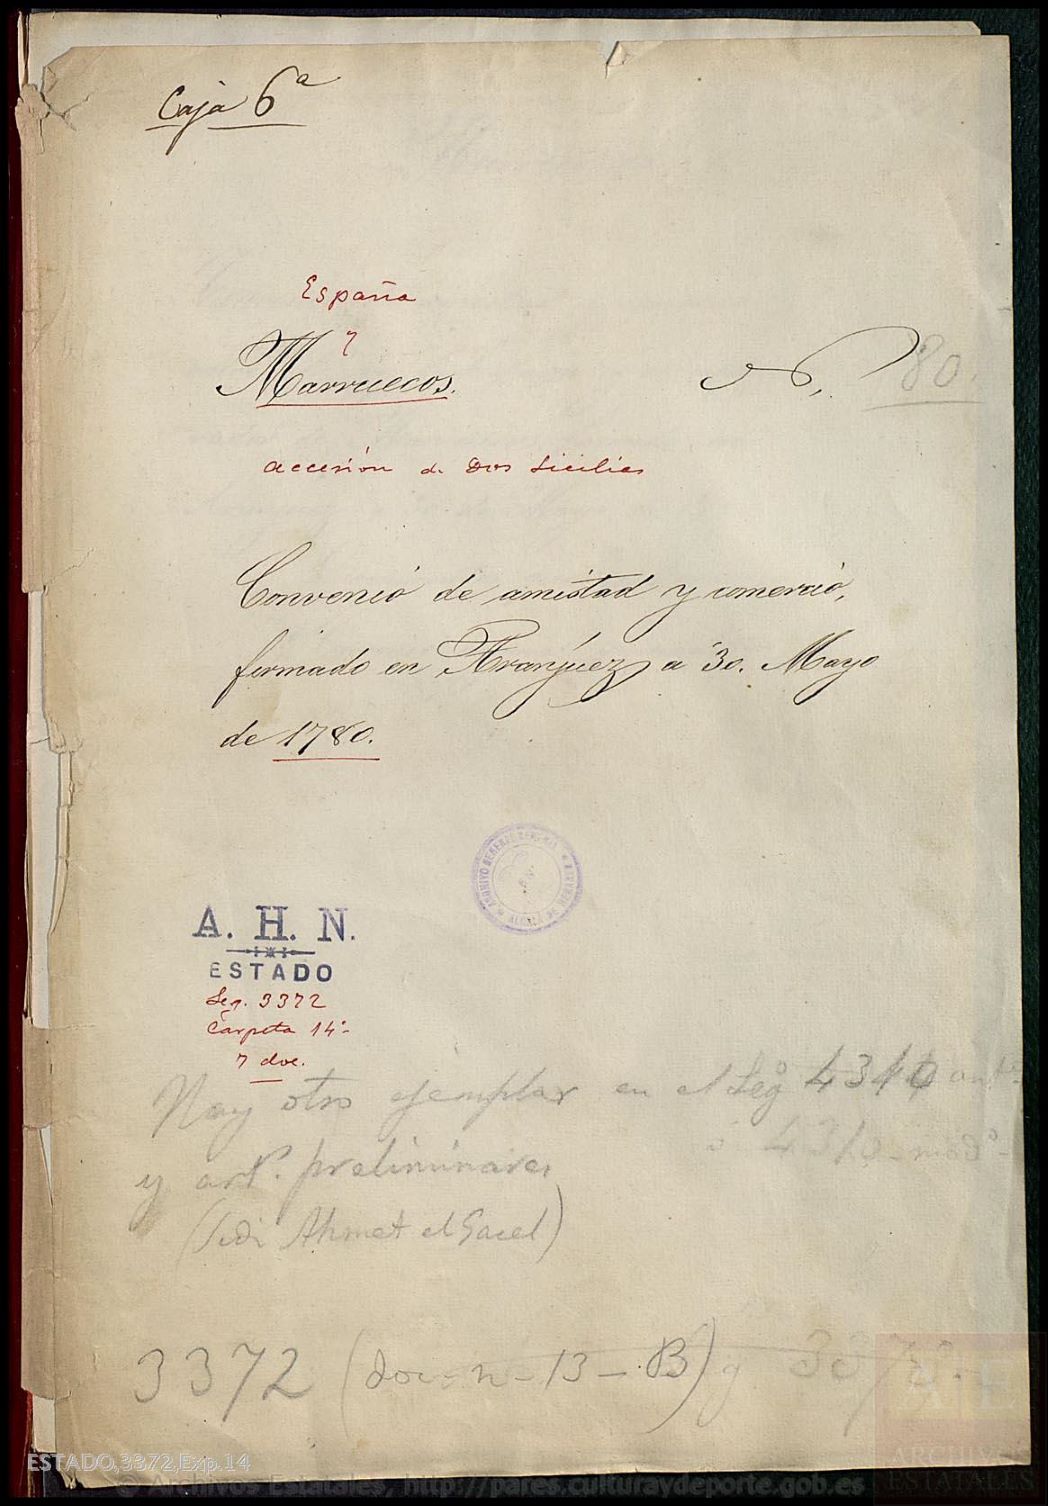 Caja 6ª
España
y
Marruecos.
N. 80.
accesión de Dos Sicilias
Convenio de amistad y comercio,
firmado en Aranjuez a 30. Mayo
de 1780.
ARCHIVO GENERAL CENTRAL
ALCALÁ DE HENARES
A. H. N.
ESTADO
Leg. 3372
Carpeta 14ª
7 doc.
Hay otro ejemplar en el Legº
y art. preliminares
(Sidi Ahmet el Gacel)
3372 (doc. n-13-B) y
ESTADO,3372,Exp.14
© Archivos Estatales, http://pares.culturaydeporte.gob.es
AE
ARCHIVOS
ESTATALES